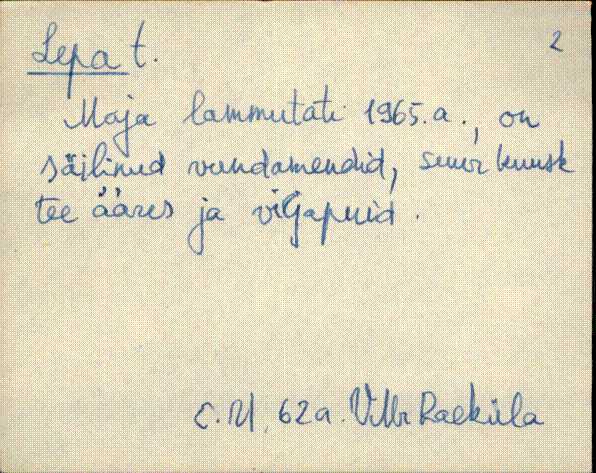 Lepa t. 2
Maja lammutati 1965.a., on
säilinud vundamendid, suur kuusk
tee ääres ja viljapuid.
62a. Villi Raeküla